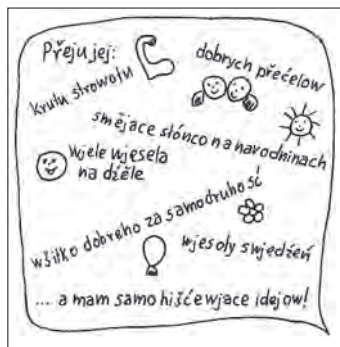 Přeju jej:
krutu strowotu
dobrych přećelow
smějace słónco na narodninach
wjele wjesela
na dźěle
wšitko dobreho za samodruhosć
wjesoły swjedźeń
... a mam samo hišće wjace idejow!